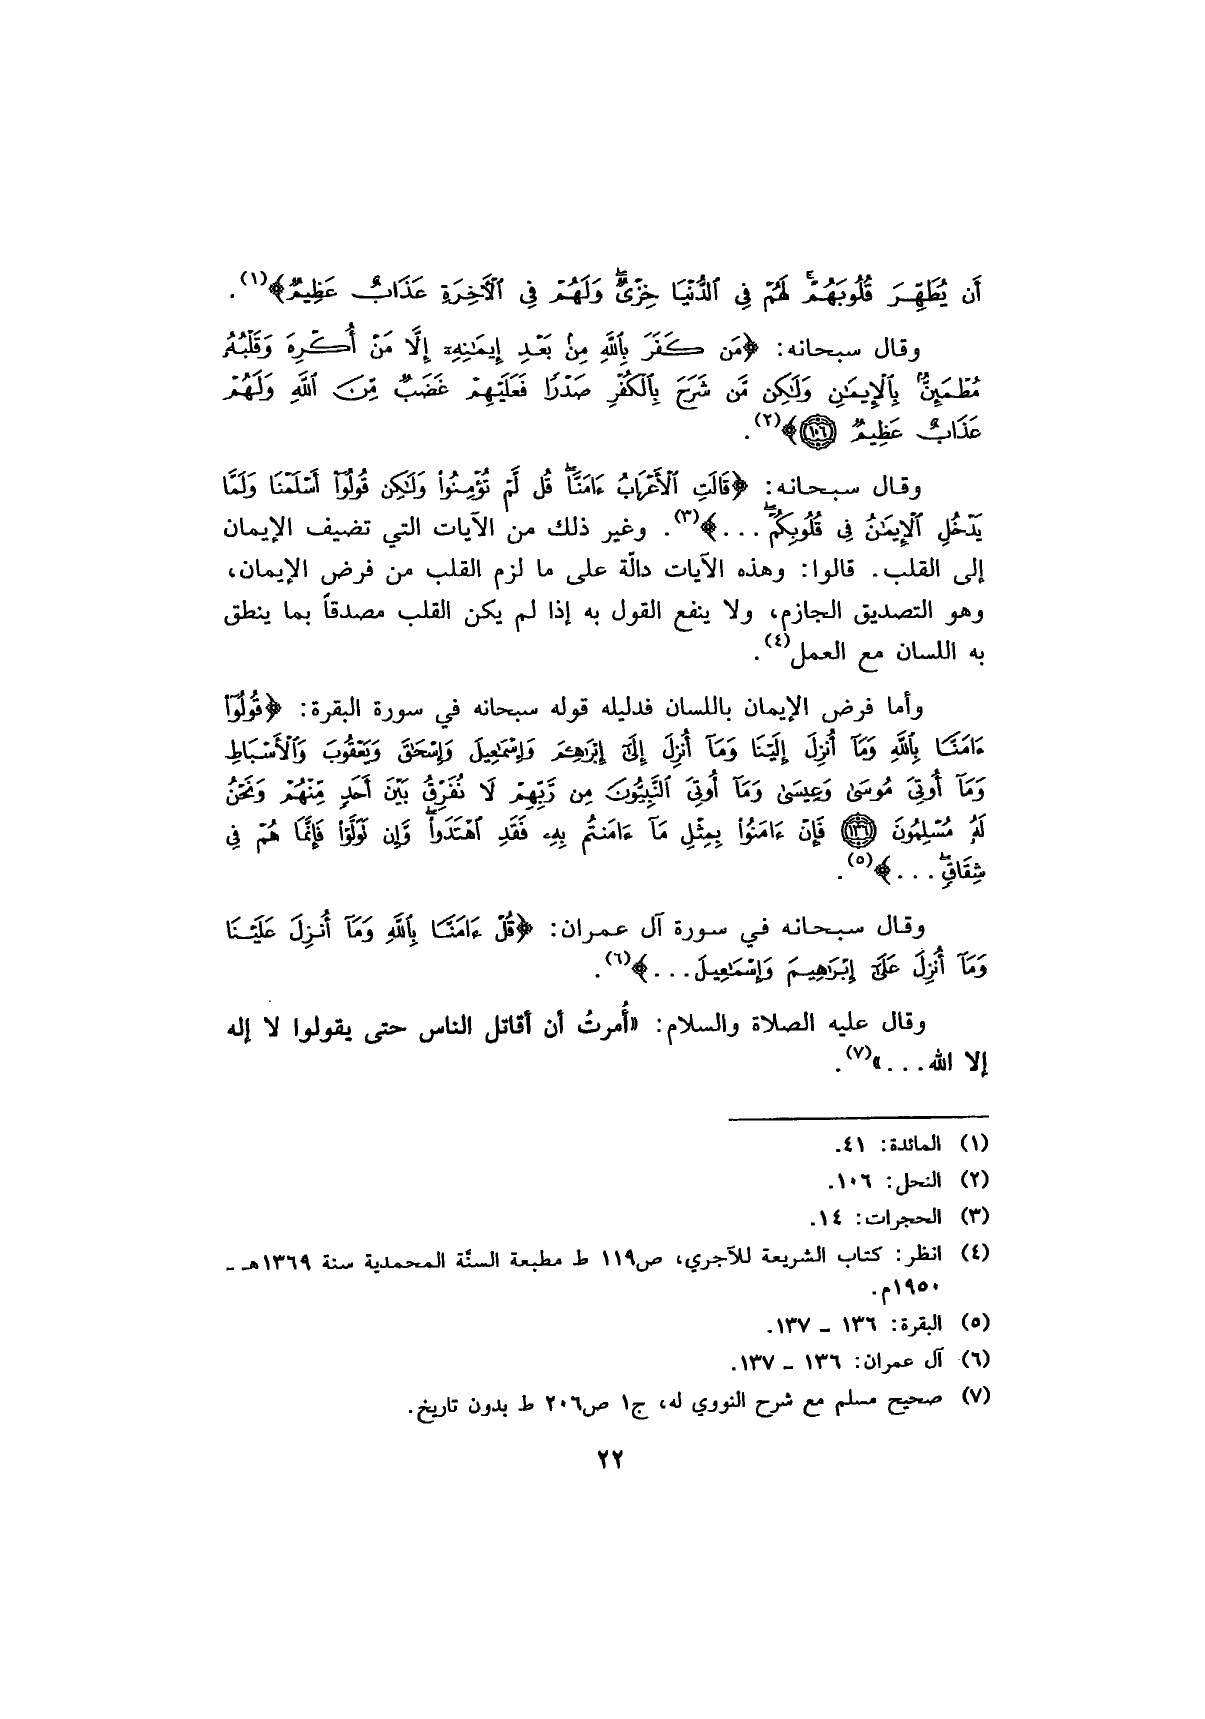 أَن يُطَهِّرَ قُلُوبَهُمْ ۚ لَهُمْ فِي ٱلدُّنْيَا خِزْىٌ ۖ وَلَهُمْ فِي ٱلْآخِرَةِ عَذَابٌ عَظِيمٌ﴾(١).
وقال سبحانه: ﴿مَن كَفَرَ بِٱللَّهِ مِنۢ بَعْدِ إِيمَٰنِهِۦٓ إِلَّا مَنْ أُكْرِهَ وَقَلْبُهُۥ
مُطْمَئِنٌّۢ بِٱلْإِيمَٰنِ وَلَٰكِن مَّن شَرَحَ بِٱلْكُفْرِ صَدْرًا فَعَلَيْهِمْ غَضَبٌ مِّنَ ٱللَّهِ وَلَهُمْ
عَذَابٌ عَظِيمٌ ١٠٦﴾(٢).
وقال سبحانه: ﴿قَالَتِ ٱلْأَعْرَابُ ءَامَنَّا ۖ قُل لَّمْ تُؤْمِنُوا۟ وَلَٰكِن قُولُوٓا۟ أَسْلَمْنَا وَلَمَّا
يَدْخُلِ ٱلْإِيمَٰنُ فِى قُلُوبِكُمْ ۖ . . .﴾(٣). وغير ذلك من الآيات التي تضيف الإيمان
إلى القلب. قالوا: وهذه الآيات دالّة على ما لزم القلب من فرض الإيمان،
وهو التصديق الجازم، ولا ينفع القول به إذا لم يكن القلب مصدقاً بما ينطق
به اللسان مع العمل(٤).
وأما فرض الإيمان باللسان فدليله قوله سبحانه في سورة البقرة: ﴿قُولُوٓا۟
ءَامَنَّا بِٱللَّهِ وَمَآ أُنزِلَ إِلَيْنَا وَمَآ أُنزِلَ إِلَىٰٓ إِبْرَٰهِۦمَ وَإِسْمَٰعِيلَ وَإِسْحَٰقَ وَيَعْقُوبَ وَٱلْأَسْبَاطِ
وَمَآ أُوتِىَ مُوسَىٰ وَعِيسَىٰ وَمَآ أُوتِىَ ٱلنَّبِيُّونَ مِن رَّبِّهِمْ لَا نُفَرِّقُ بَيْنَ أَحَدٍ مِّنْهُمْ وَنَحْنُ
لَهُۥ مُسْلِمُونَ ١٣٦ فَإِنْ ءَامَنُوا۟ بِمِثْلِ مَآ ءَامَنتُم بِهِۦ فَقَدِ ٱهْتَدَوا۟ ۖ وَّإِن تَوَلَّوْا۟ فَإِنَّمَا هُمْ فِى
شِقَاقٍ ۖ . . .﴾(٥).
وقال سبحانه في سورة آل عمران: ﴿قُلْ ءَامَنَّا بِٱللَّهِ وَمَآ أُنزِلَ عَلَيْنَا
وَمَآ أُنزِلَ عَلَىٰٓ إِبْرَٰهِيمَ وَإِسْمَٰعِيلَ. . .﴾(٦).
وقال عليه الصلاة والسلام: «أُمرتُ أن أقاتل الناس حتى يقولوا لا إله
إلا الله. . .»(٧).
(١) المائدة: ٤١.
(٢) النحل: ١٠٦.
(٣) الحجرات: ١٤.
(٤) انظر: كتاب الشريعة للآجري، ص١١٩ ط مطبعة السنَّة المحمدية سنة ١٣٦٩هـ -
١٩٥٠م.
(٥) البقرة: ١٣٦ - ١٣٧.
(٦) آل عمران: ١٣٦ - ١٣٧.
(٧) صحيح مسلم مع شرح النووي له، ج١ ص٢٠٦ ط بدون تاريخ.
٢٢